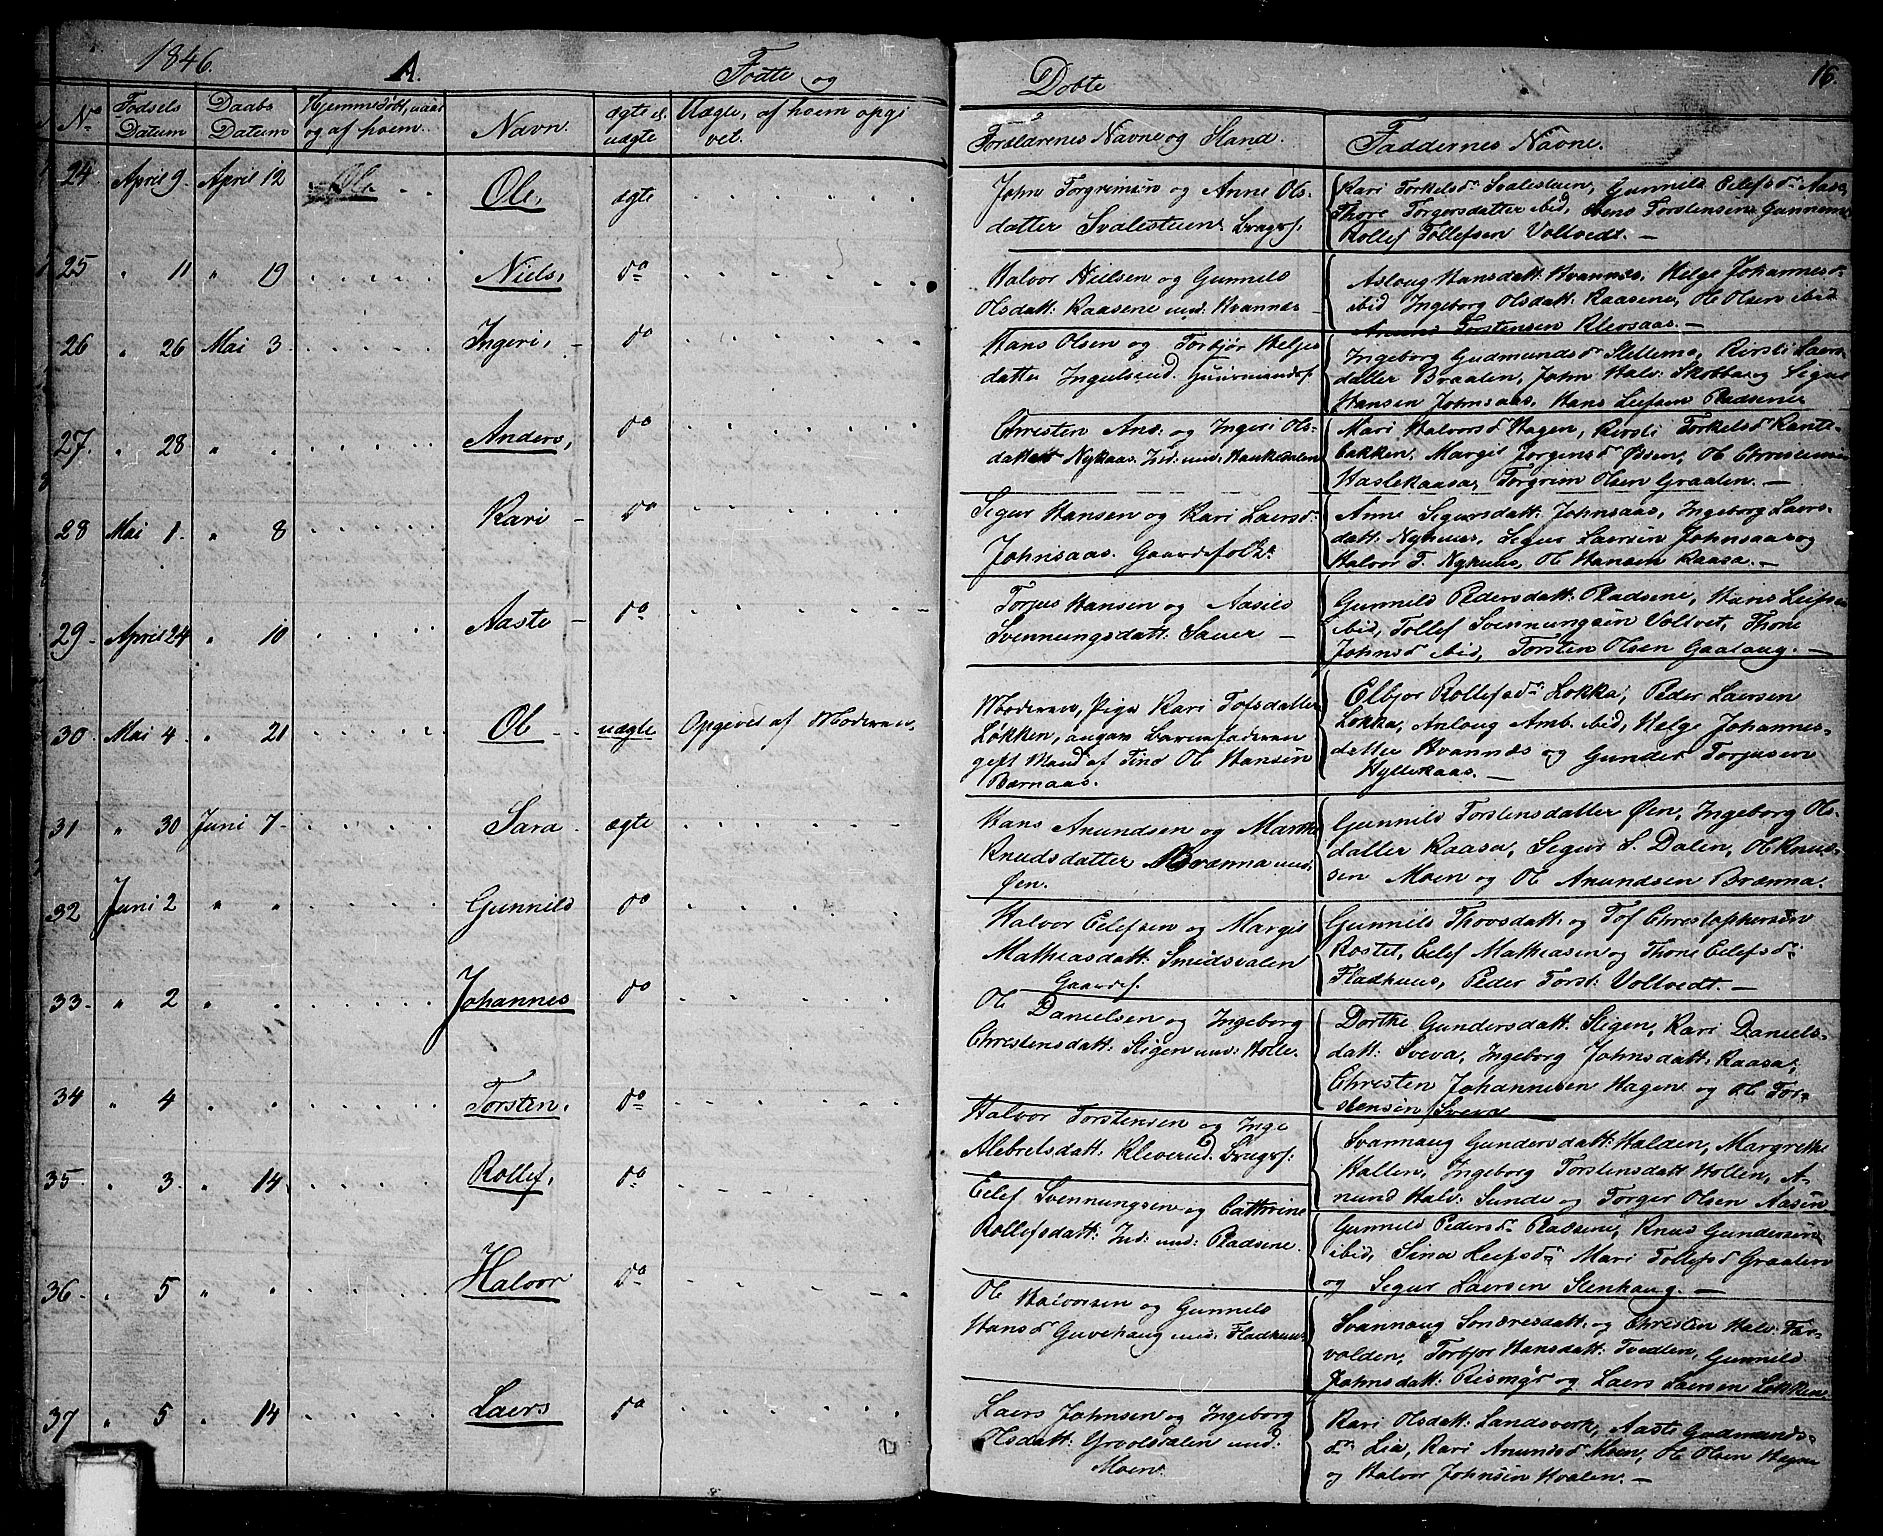 1846. A. Födte og Döbte 16.
No Födsels Datum Daabs Datum Hjemmedöbt, naar og af hvem. Navn. ægte el. uægte Uægte, af hvem opgivet. Forældrenes Navne og Stand. Faddernes Navne.
24 April 9 April 12 Ole, ægte
John Torgrimsen og Anne Ols-
datter Svalesteien Brugsf.
Kari Torkelsdr Svalestuen, Gunnild Eelefsdr Aasen
Thore Torgersdatter ibid,
Rollef Tollefsen Voltvedt. —
25 " 11 " 19 Niels, do
Halvor Nielsen og Gunnild
Olsdatt: Kaasene und. Hvannes
Aslaug Hansdatt: Hvannes, Helge Johannesdr
ibid Ingeborg Olsdatt: Kaasene, Ole Olsen ibid
Torstensen Klevsaas. —
26 " 26 Mai 3 Ingeri, do
Hans Olsen og Torbjör Helges
datter Ingulsrud.
Ingeborg Gudmundsdr Stellemo, Kirsti Laers
datter Braalen, John Halv: Skobba og Segur
Hansen Johnsaas, Hans Leifsen Radsene
27. " 28 " " Anders, do
Chresten And: og Ingeri Ols-
datter Nykaas. Ind. und. Haukedalen
Mari Halvorsd Hagen, Kirsti Torkelsd
bakken, Margit Jorgensd Øden, Ole
Haslekaasa, Torgrim Olsen Graalen. —
28 Mai 1. " 8 Kari do
Segur Hansen og Kari Laersd:
Johnsaas. Gaardsfolk.
Anne Segursdatt: Johnsaas, Ingeborg Laers-
datt: Nyhuus, Segur Laersen Johnsaas og
Halvor T. Nyhuus, Ole Hansen Kaasa. —
29. April 24 " 10 Aaste do
Torjus Hansen og Aasild
Svennungsdatt: Sauer —
Gunnild Pedersdatt: Radsene, Hans Leifsen
ibid, Tollef Svennungsen Voltvet, Thone
Johnsd ibid, Torsten Olsen Gaalaug. —
30. Mai 4. " 21 Ole uægte Opgivet af Moderen.
Moderen, Pige Kari Tofsdatter
Løkken, angav Barnefaderen
gift Mand af Tind Ole Hansen
Bærnaas.
Elbjor Rollefsdr Løkka, Peder Laersen
Løkka, Anlaug Amb. ibid, Helge Johannes-
datter Hvannes og Gunder Torjusen
Hyllekaas. —
31 " 30 Juni 7 Sara ægte
Hans Anundsen og Marthe
Knudsdatter Brænna und.
Øen.
Gunnild Torstensdatter Øen, Ingeborg Ols-
datter Kaasa, Segur S. Dalen, Ole Knud-
sen Moen og Ole Anundsen Brænna.
32 Juni 2 " " Gunnild do
Halvor Eelefsen og Margit
Mathiasdatt: Smidsvalen
Gaardsf.
Gunnild Thovsdatt: og Tof Christophersen
Rostet, Eelef Mathiasen og Thone Eelefsd:
Fladhuus, Peder Torst: Voltvedt. —
33. " 2 " " Johannes do
Ole Danielsen og Ingeborg
Christensdatt: Stigen und: Holte.
Dorthe Gundersdatt: Stigen, Kari Daniels-
datt: Sveva, Ingeborg Johnsdatt: Kaasa,
Chresten Johannesen Hagen og Ole Tor-
stensen Sveva
34 " 4 " " Torsten. do
Halvor Torstensen og Inge
Alebretsdatt: Kleverud Brugsf:
Svannaug Gundersdatt: Halden, Margrethe
Hallen, Ingeborg Torstensdatt Hollen, A-
nund Halv: Sunde og Torger Olsen Aasen
35 " 3 " 14. Rollef, do
Eelef Svennungsen og Cathrine
Rollefsdatt: Ind: und: Radsene.
Gunnild Pedersdr Radsene, Knud Gundersen
ibid, Sina Leifsdr Mari Tollefsd Graalen
og Segur Laersen Stenhaug. —
36. " 5 " " Halvor do
Ole Halvorsen og Gunnild
Hansd Guvehaug und: Fladhuus
Svannaug Sondresdatt: og Chresten Halv: Tar-
volden, Torbjor Hansdatt: Tvedten, Gunnild
Johnsdatt: Rismyr og Laers Laersen Løkken
37 " 5 " 14 Laers do
Laers Johnsen og Ingeborg
Olsdatt: Grovsdalen und:
Moen.
Kari Olsdatt: Landsverk, Aaste Gudmunds-
dr Lia, Kari Anundsd Moen, Ole Olsen
og Halvor Johnsen Hvalen. —